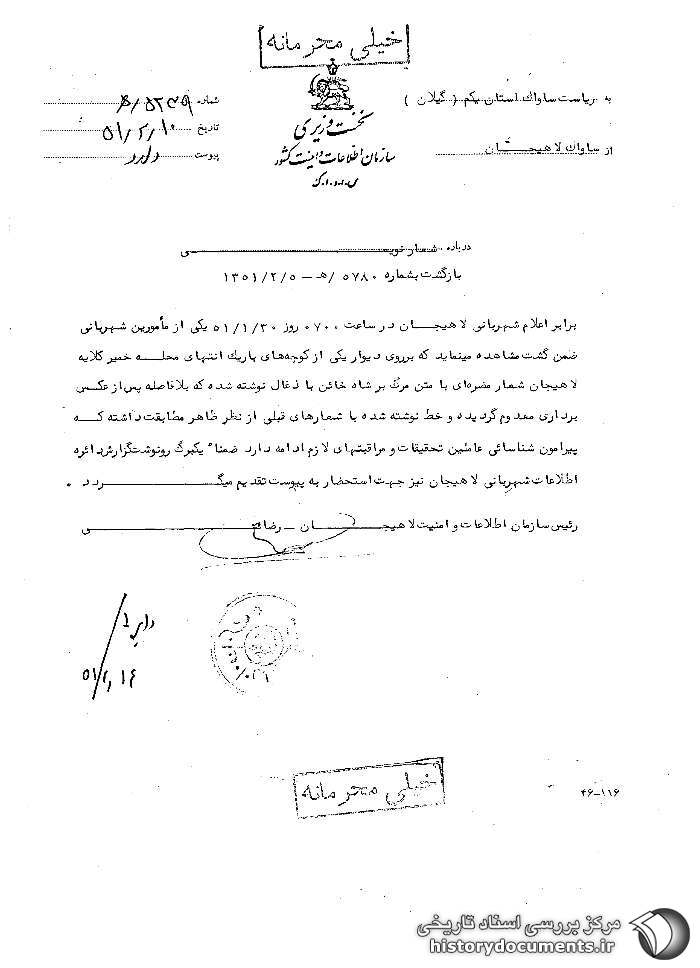 خیلی محرمانه
به ریاست ساواک استان یکم ( گیلان )
از ساواک لاهیجان
نخست وزیری
سازمان اطلاعات و امنیت کشور
س.ا.و.ا.ک
شماره ۵۲۳۹/ه
تاریخ ۵۱/۲/۱۰
پیوست دارد
درباره شعارنویسی
بازگشت بشماره ۵۷۸۰ /ه‍ – ۱۳۵۱/۲/۵
برابر اعلام شهربانی لاهیجان در ساعت ۰۷۰۰ روز ۵۱/۱/۳۰ یکی از مأمورین شهربانی
ضمن گشت مشاهده مینماید که برروی دیوار یکی از کوچه‌های باریک انتهای محله خمیر کلایه
لاهیجان شعار مضره‌ای با متن مرگ بر شاه خائن با ذغال نوشته شده که بلافاصله پس از عکس
برداری معدوم گردیده و خط نوشته شده با شعارهای قبلی از نظر ظاهر مطابقت داشته که
پیرامون شناسائی عاملین تحقیقات و مراقبتهای لازم ادامه دارد ضمناً یکبرگ رونوشت گزارش دائره
اطلاعات شهربانی لاهیجان نیز جهت استحضار به پیوست تقدیم میگردد .
رئیس سازمان اطلاعات و امنیت لاهیجان – رضائی
۵۱/۲/۱۶
خیلی محرمانه
۴۶-۱۱۶
مرکز بررسی اسناد تاریخی
historydocuments.ir